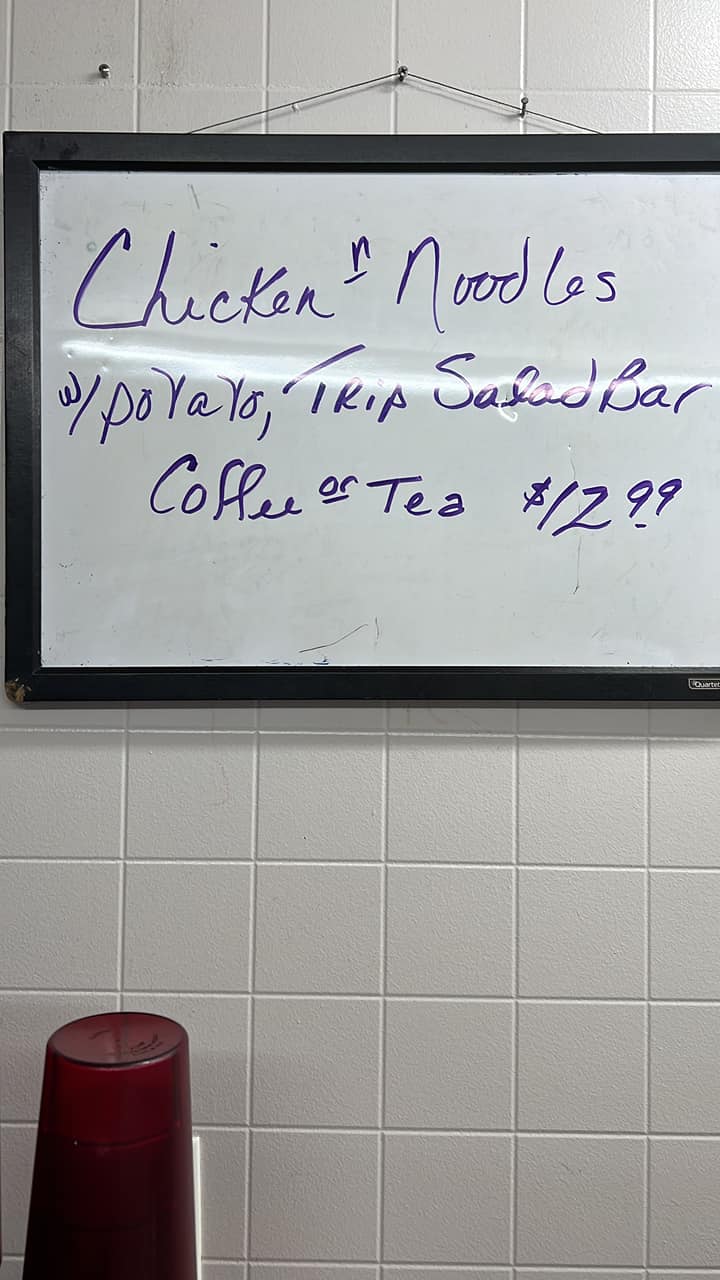 Chicken n Noodles
w/ potato, Trip Salad Bar
Coffee or Tea $12.99
Quartet